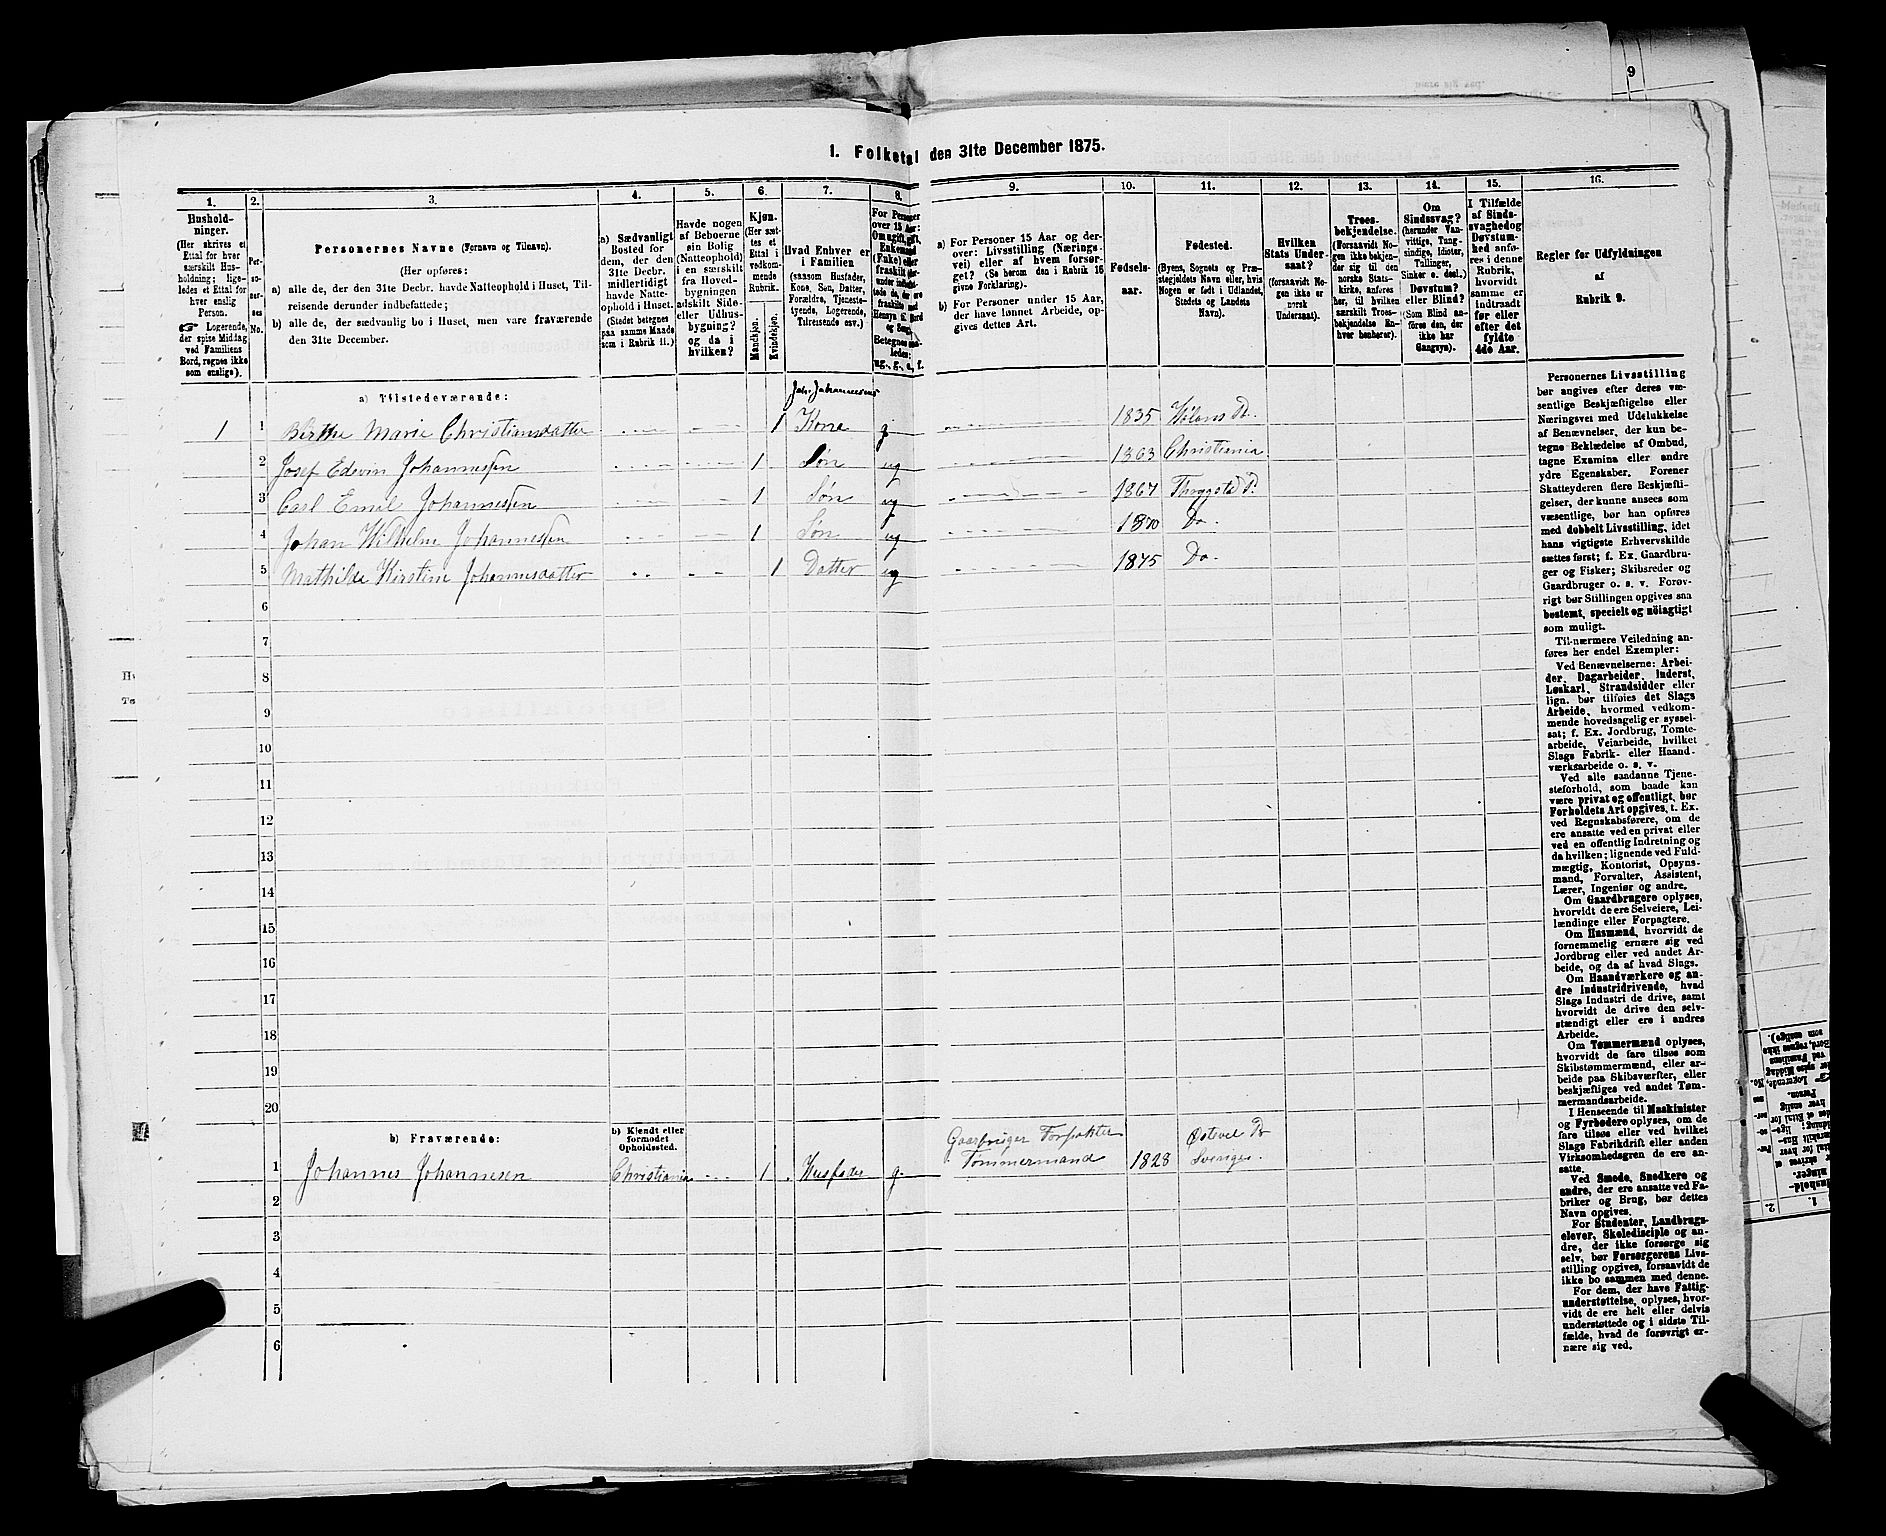 9
1. Folketal den 31te December 1875.
1. 2. 3. 4. 5. 6. 7. 8. 9. 10. 11. 12. 13. 14. 15. 16.
Hushold-
ninger.
(Her skrives et
Ettal for hver
særskilt Hus-
holdning; lige-
ledes et Ettal for
hver enslig
Person.
☞ Logerende,
der spise Middag
ved Familiens
Bord, regnes ikke
som enslige).
Per-
so-
ner-
nes
No.
Personernes Navne (Fornavn og Tilnavn).
(Her opføres:
a) alle de, der den 31te Decbr. havde Natteophold i Huset, Til-
reisende derunder indbefattede;
b) alle de, der sædvanlig bo i Huset, men vare fraværende
den 31te December.
a) Sædvanligt
Bosted for
dem, der den
31te Decbr.
midlertidigt
havde Natte-
ophold i Huset.
(Stedet betegnes
paa samme Maade
som i Rubrik 11.)
Havde nogen
af Beboerne
sin Bolig
(Natteophold)
i en særskilt
fra Hoved-
bygningen
adskilt Side-
eller Udhus-
bygning?
og da i
hvilken?
Kjøn.
(Her sæt-
tes et
Ettal i
vedkom-
mende
Rubrik.
Mandkjøn.
Kvindekjøn.
Hvad Enhver er
i Familien
(saasom Husfader,
Kone, Søn, Datter,
Forældre, Tjeneste-
tyende, Logerende,
Tilreisende osv.)
For Personer
over 15 Aar:
Om ugift, gift,
Enkemand
(Enke) eller
fraskilt
Betegnes saa-
ledes:
ug., g., e., f.
a) For Personer 15 Aar og der-
over: Livsstilling (Nærings-
vei) eller af hvem forsør-
get? (Se herom den i Rubrik 16
givne Forklaring).
b) For Personer under 15 Aar,
der have lønnet Arbeide, op-
gives dettes Art.
Fødsels-
aar.
Fødested.
(Byens, Sognets og Præ-
stegjeldets Navn eller, hvis
Nogen er født i Udlandet,
Stedets og Landets
Navn).
Hvilken
Stats Under-
saat?
(forsaavidt No-
gen ikke er
norsk
Undersaat).
Troes-
bekjendelse.
(Forsaavidt No-
gen ikke bekjen-
der sig til den
norske Stats-
kirke, anføres
her, til hvilken
særskilt Troes-
bekjendelse En-
hver henhører).
Om
Sindssvag?
(herunder Van-
vittige, Tung-
sindige, Idioter,
Tullinger,
Sinker o. desl.)
Døvstum?
eller Blind?
(Som Blind an-
føres den, der
ikke har
Gangsyn).
I Tilfælde
af Sinds-
svaghed og
Døvstum-
hed anfø-
res i denne
Rubrik,
hvorvidt
samme er
indtraadt
før eller
efter det
fyldte
4de Aar.
Regler for Udfyldningen
af
Rubrik 9.
a) Tilstedeværende:
Joh. Johannesens
1 1 Birthe Marie Christiansdatter 1 Kone g 1835 Hølans P.
2 Josef Edevin Johannessen 1 Søn ug 1863 Christiania
3 Carl Emil Johannessen 1 Søn ug 1867 Thrygsta P.
4 Johan Wilhelm Johannessen 1 Søn ug 1870 Do.
5 Mathilde Kirstine Johannesdatter 1 Datter ug 1875 Do.
6
7
8
9
10
11
12
13
14
15
16
17
18
19
20
b) Fraværende:
b) Kjendt eller
formodet
Opholdssted.
Gaardbruger Forpakter Østevel Pr
1 Johannes Johannesen Christiania 1 Husfader g. Tømmermand 1828 Sverige.
2
3
4
5
6
Personernes Livsstilling
bør angives efter deres væ-
sentlige Beskjæftigelse eller
Næringsvei med Udelukkelse
af Benævnelser, der kun be-
tegne Beklædelse af Ombud,
tagne Examina eller andre
ydre Egenskaber. Forener
Skatteyderen flere Beskjæfti-
gelser, der kunne ansees som
væsentlige, bør han opføres
med dobbelt Livsstilling, idet
hans vigtigste Erhvervskilde
sættes først; f. Ex. Gaardbru-
ger og Fisker; Skibsreder og
Gaardbruger o. s. v. Forøv-
rigt bør Stillingen opgives saa
bestemt, specielt og nöiagtigt
som muligt.
Til nærmere Veiledning an-
føres her endel Exempler:
Ved Benævnelserne: Arbei-
der, Dagarbeider, Inderst,
Løskarl, Strandsidder eller
lign. bør tilføies det Slags
Arbeide, hvormed vedkom-
mende hovedsagelig er syssel-
sat; f. Ex. Jordbrug, Tomte-
arbeide, Veiarbeide, hvilket
Slags Fabrik- eller Haand-
værksarbeide o. s. v.
Ved alle saadanne Tjene-
steforhold, som baade kan
være privat og offentligt, bør
Forholdets Art opgives, t. Ex.
ved Regnskabsførere, om de
ere ansatte ved en privat eller
ved en offentlig Indretning og
da hvilken; lignende ved Fuld-
mægtig, Kontorist, Opsyns-
mand, Forvalter, Assistent,
Lærer, Ingeniør og andre.
Om Gaardbrugere oplyses,
hvorvidt de ere Selveiere, Lei-
lændinge eller Forpagtere.
Om Husmænd, hvorvidt de
fornemmelig ernære sig ved
Jordbrug eller ved andet Ar-
beide, og da af hvad Slags.
Om Haandværkere og an-
dre Industridrivende, hvad
Slags Industri de drive, samt
hvorvidt de drive den selv-
stændigt eller ere i andres
Arbeide.
Om Tømmermænd oplyses,
hvorvidt de fare tilsøs som
Skibstømmermænd, eller ar-
beide paa Skibsværfter, eller
beskjæftiges ved andet Tøm-
mermandsarbeide.
I Henseende til Maskinister
og Fyrbødere oplyses, om de
fare tilsøs eller ved hvilket
Slags Fabrikdrift eller anden
Virksomhedsgren de ere an-
satte.
Ved Smede, Snedkere og
andre, der ere ansatte ved Fa-
briker og Brug, bør dettes
Navn opgives.
For Studenter, Landbrugs-
elever, Skoledisciple og an-
dre, der ikke forsørge sig
selv, bør Forsørgerens Livs-
stilling opgives, forsaavidt de
ikke bo sammen med denne.
For dem, der have Fattig-
understøttelse, oplyses, hvor-
vidt de ere helt eller delvis
understøttede og i sidste Til-
fælde, hvad de forøvrigt er-
nære sig ved.